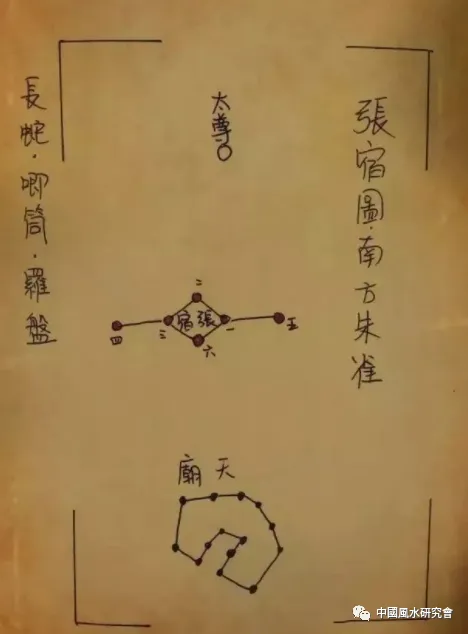 張宿圖·南方朱雀
太尊
長蛇·唧筒·羅盤
二
張宿
一
三
六
五
四
天廟
中國風水研究會